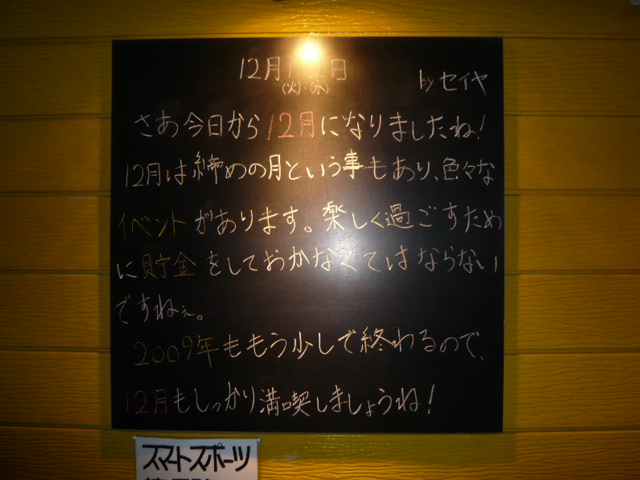 12月1.2日
(火).(水)
by セイヤ
さあ今日から12月になりましたね!
12月は締めの月という事もあり、色々な
イベントがあります。楽しく過ごすため
に貯金をしておかなくてはならない
ですねぇ。
2009年ももう少しで終わるので、
12月もしっかり満喫しましょうね!
スマートスポーツ